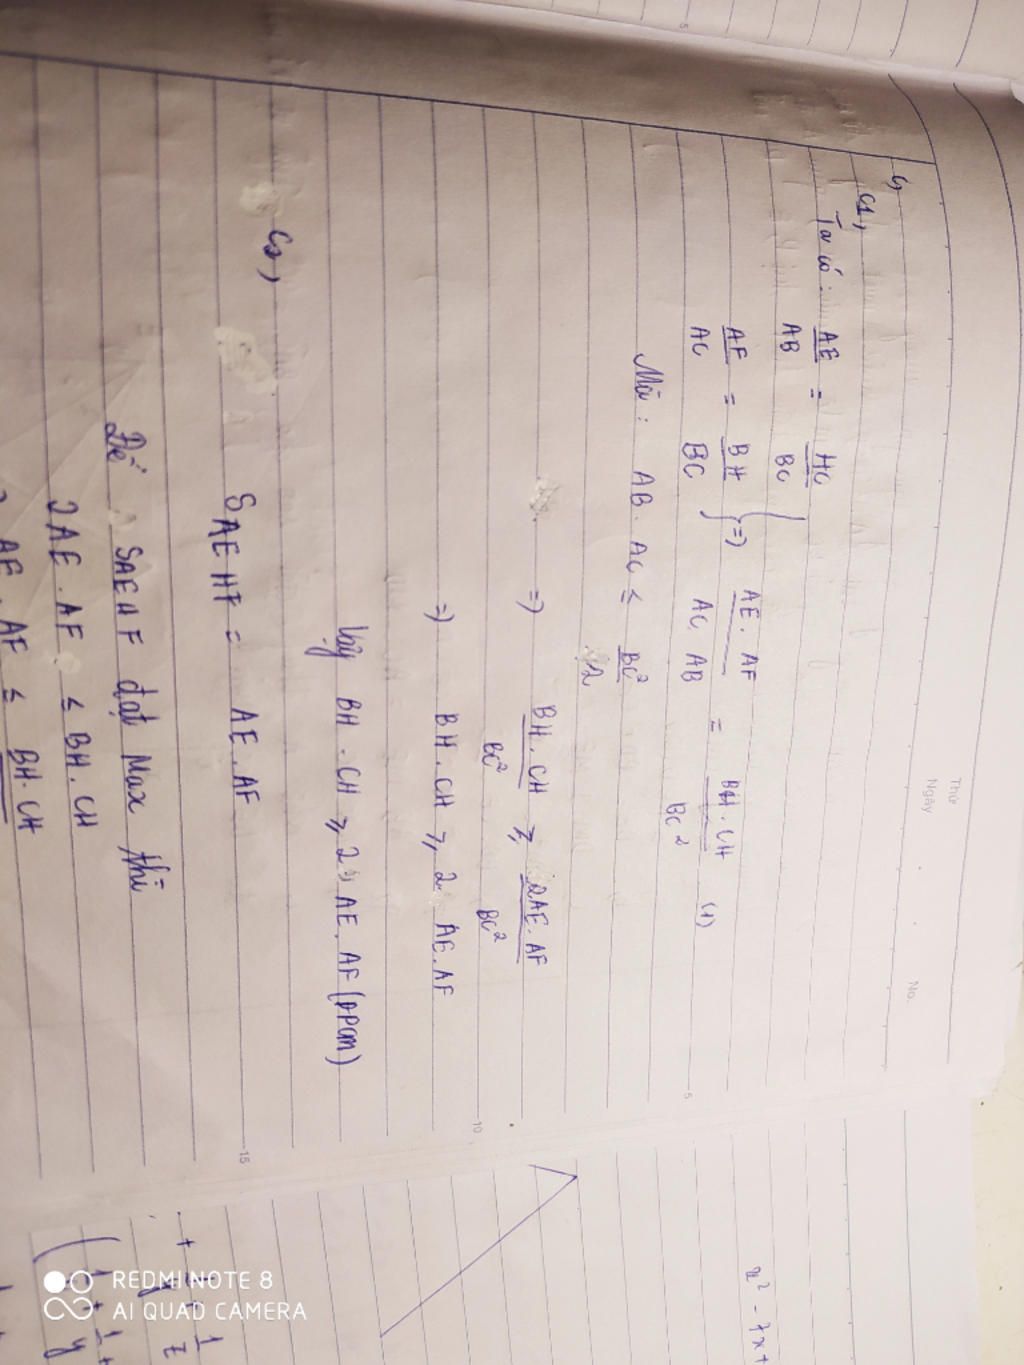 Thứ
Ngày
No.
c,
c1,
Ta có: AE/AB = HC/BC
AF/AC = BH/BC } => AE.AF/AC.AB = BH.CH/BC² (1)
Mà: AB.AC ≤ BC²/2
=> BH.CH/BC² ≥ 2AE.AF/BC²
=> BH.CH ≥ 2 AE.AF
Vậy BH.CH ≥ 2 AE.AF (ĐPCM)
c2,
SAEHF = AE.AF
Để SAEHF đạt Max thì
2AE.AF ≤ BH.CH
AE.AF ≤ BH.CH
5
10
15
x² - 7x +
+ 1/z
( 1 + 1/y +
REDMI NOTE 8
AI QUAD CAMERA